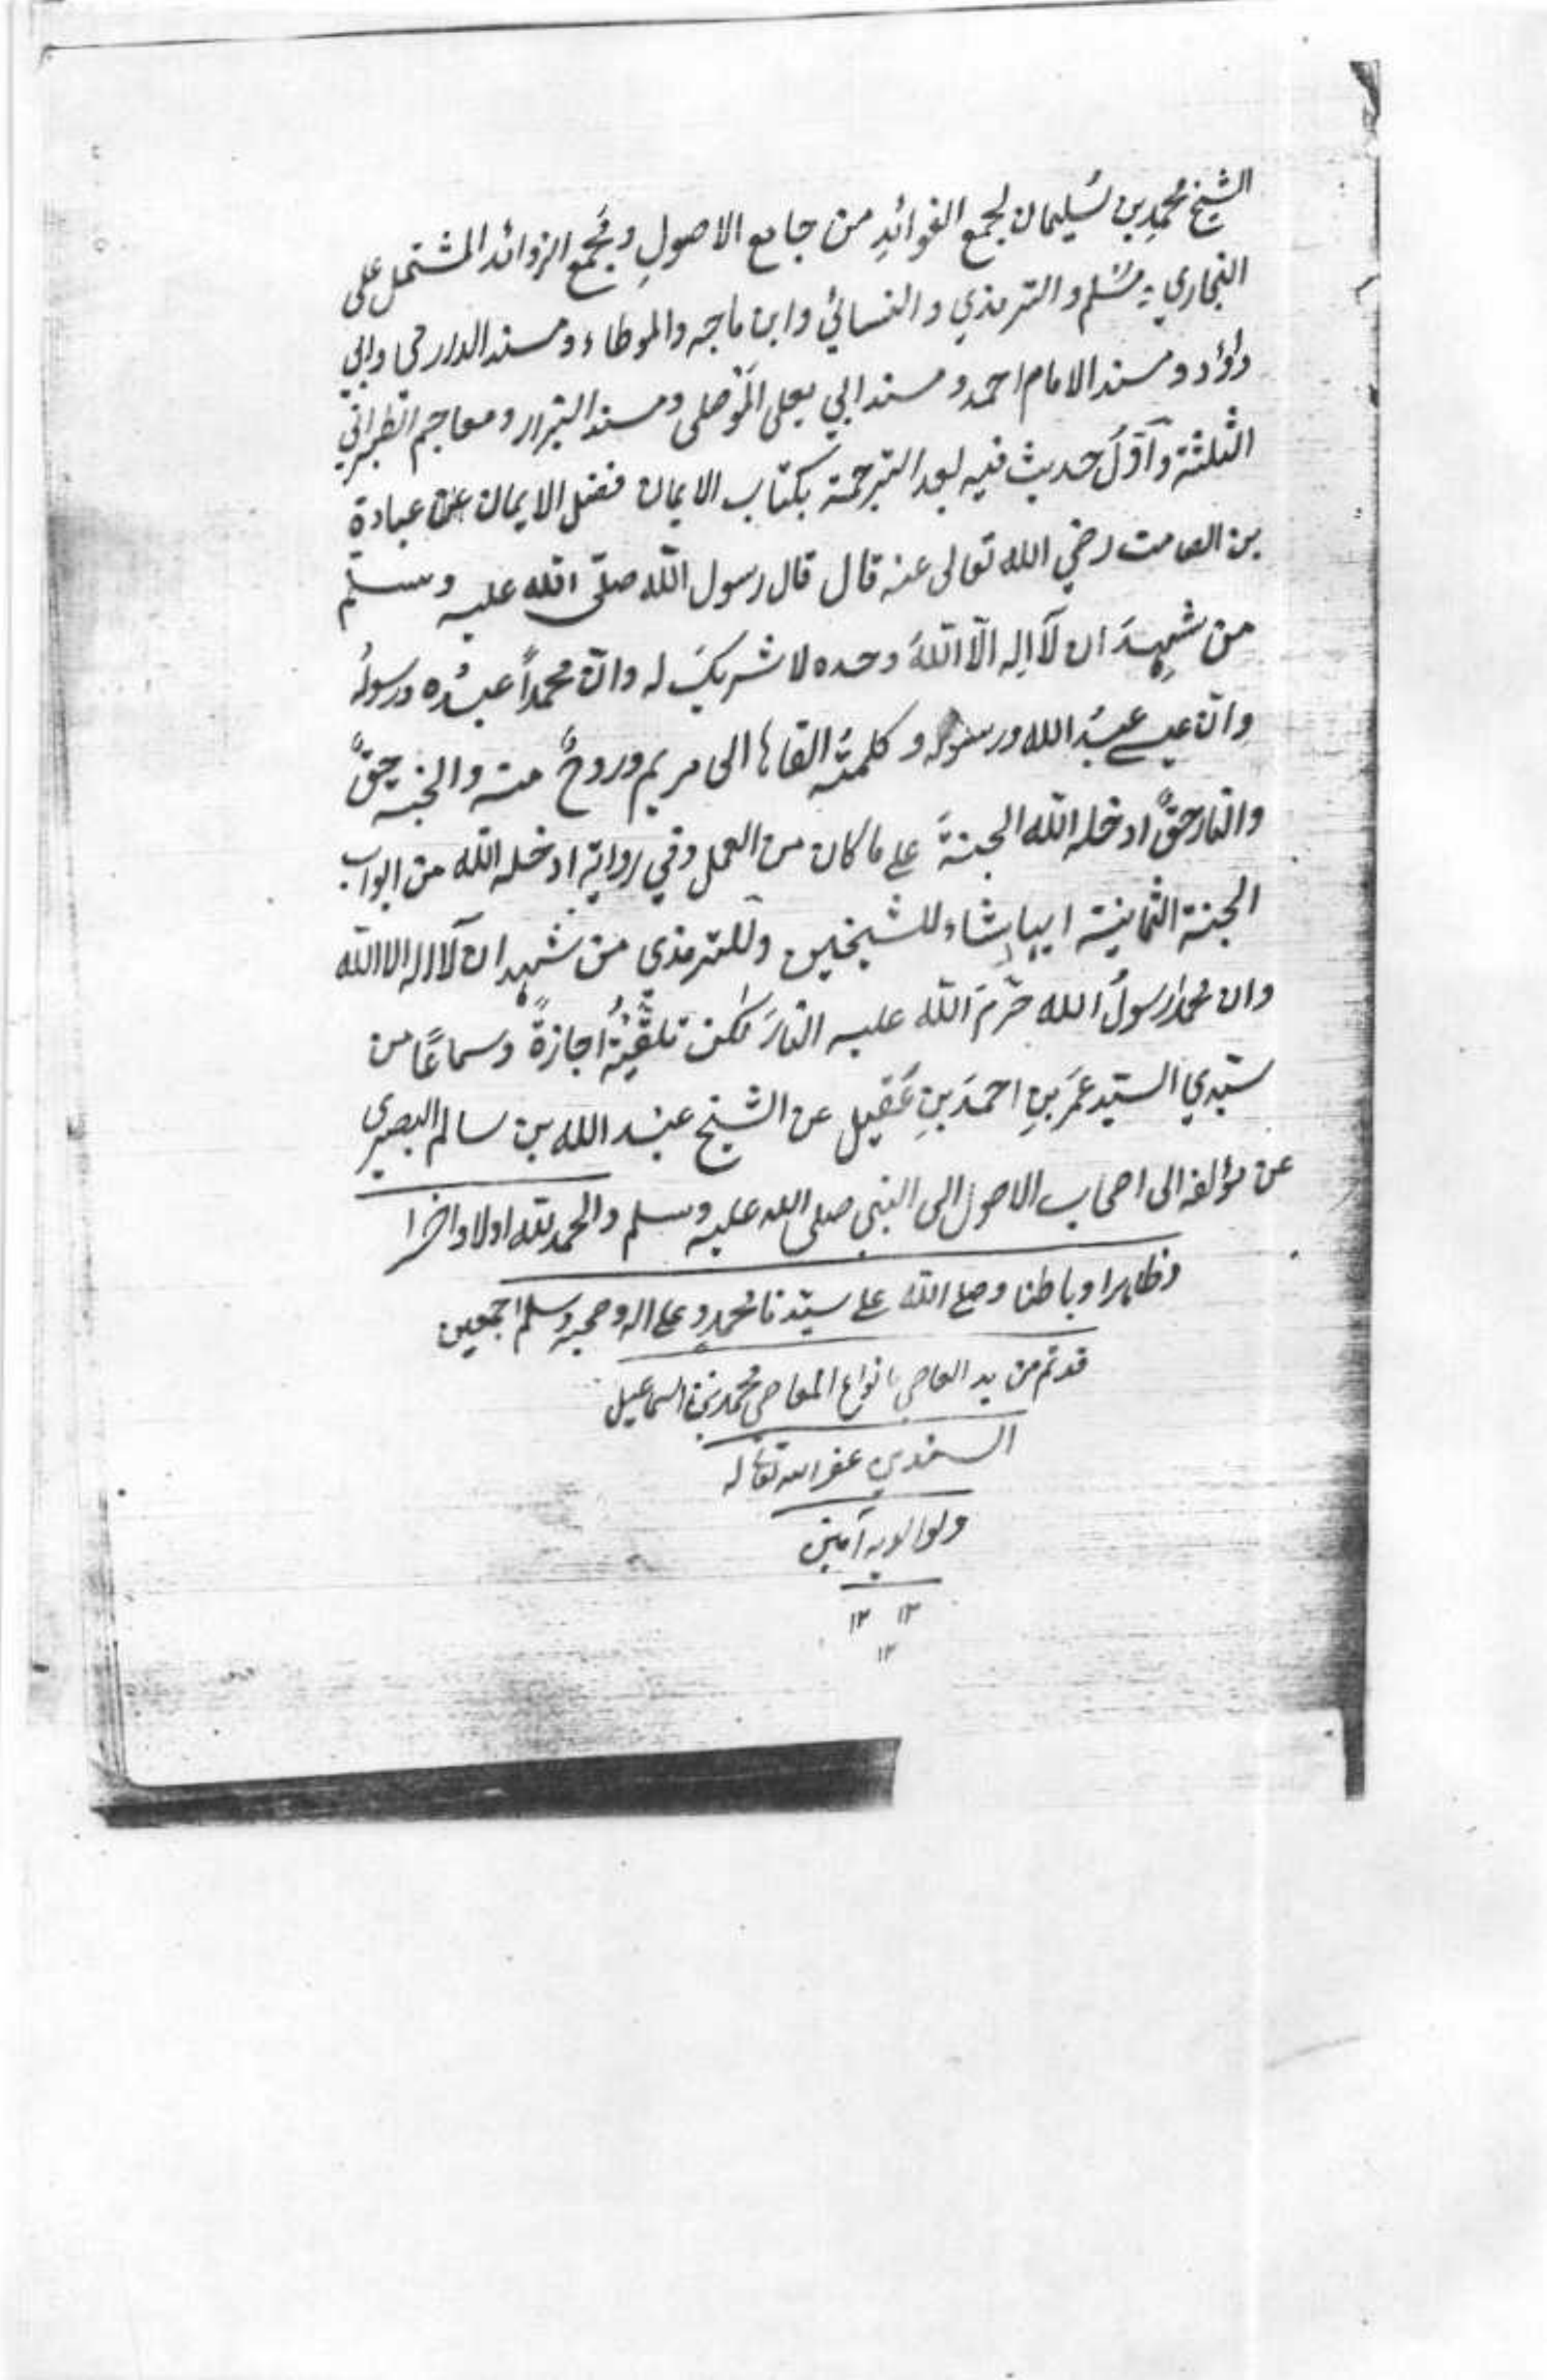 الشيخ محمدِ بن سُليمان لجمع الفوائدِ من جامع الاصولِ ومَجمع الزوائد المشتمل على
البخاري و مسُلم و الترمذي و النسائي وابن ماجه والموطاء و مسند الدارمي وابي
داؤد و مسند الامام احمد و مسند ابي يعلى المَوْصلى و مسند البزار و معاجم الطبراني
الثلثة و آوّل حديث فيه بعد الترجمة بكتاب الايمان فضل الايمان عن عبادة
بن الصامت رضي الله تعالى عنه قال قال رسول الله صلّى الله عليه وسلم
من شهِدَ ان لآاله الّا اللّهَ وحده لا شريكَ له وانّ محمداً عبدُه ورسولُه
وانّ عيسے عبدُ الله ورسوله و كلمتُه القاها الى مريم وروحٌ منه والجنة حقٌّ
والنار حقٌّ ادخله الله الجنةَ علے ما كان من العمل وفي رواية ادخله الله من ابواب
الجنة الثمانية ايها شاء للشيخين وللترمذي من شهد ان لآاله الا الله
وان محمدا رسولُ الله حرّمَ الله عليه النارَ لكن تلقّيتُه اجازةً وسماعًا من
سيّدي السيّد عمَر بنِ احمدَ بنِ عَقيل عن الشيخ عبد الله بن سالم البصرى
عن مؤلفه الى اصحاب الاصول الى النبي صلى الله عليه وسلم والحمد لله اولا واخرا
وظاهرا وباطنا وصلے الله علے سيّدنا محمدٍ وعلے اله وصحبه وسلم اجمعين
قد تم من يد العاصي بانواع المعاصي محمد بن اسماعيل
السندي غفر الله تعالى له
ولوالديه آمين
١٢ ١٢
١٢